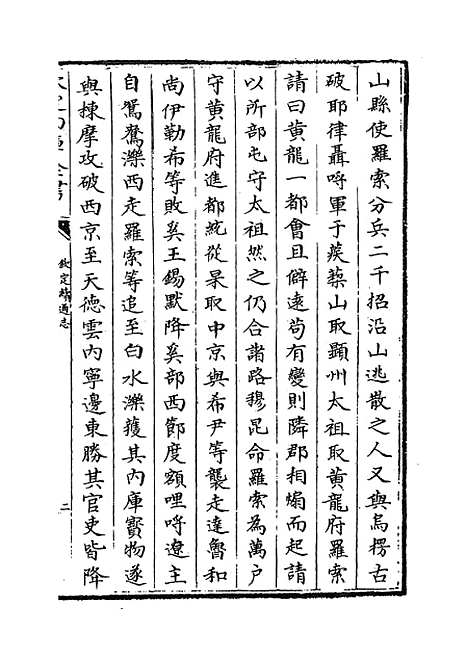 山縣使羅索分兵二千招沿山逃散之人又與烏楞古
破耶律聶呼軍于蒺藜山取顯州太祖取黃龍府羅索
請曰黃龍一都會且僻逺茍有變則隣郡相煽而起請
以所部屯守太祖然之仍合諸路穆昆命羅索為萬戶
守黃龍府進都統從杲取中京與希尹等襲走達魯和
尚伊勒希等敗奚王錫默降奚部西節度額哩呼遼主
自鴛鴦濼西走羅索等追至白水濼獲其內庫寳物遂
與揀摩攻破西京至天德雲內寧邊東勝其官吏皆降
欽定續通志
二